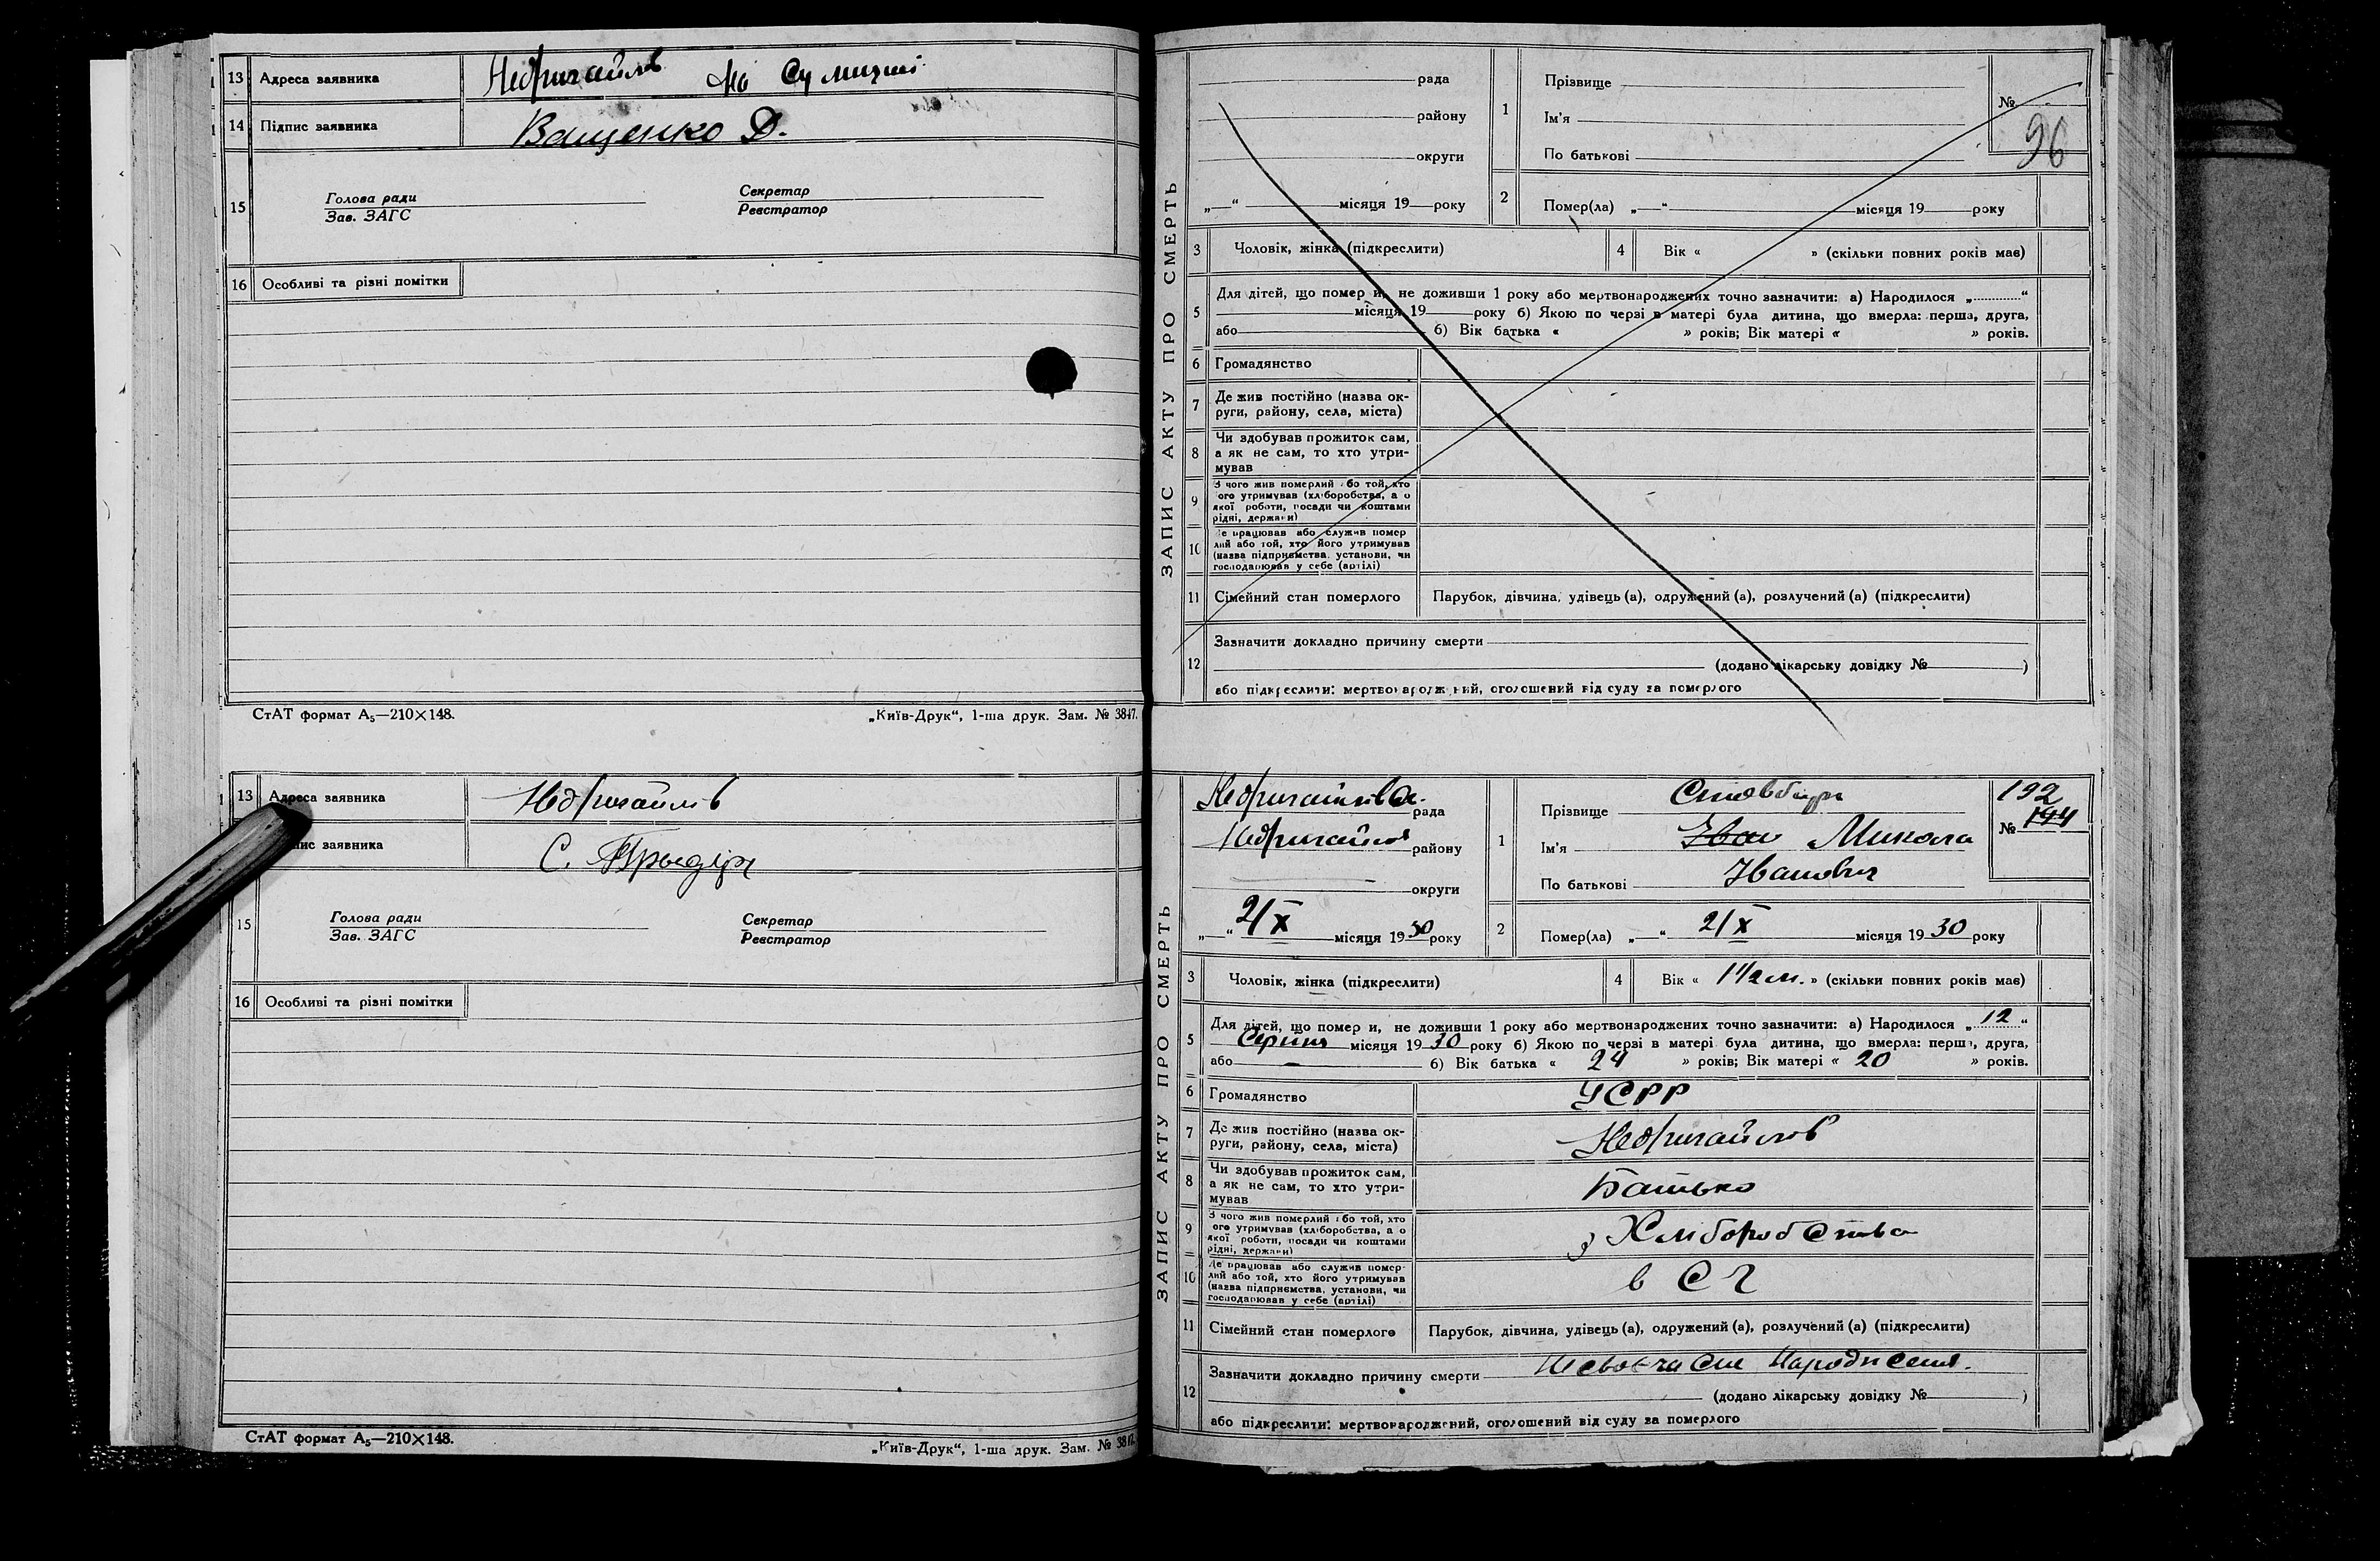 13 Адреса заявника Недригайлів На Сумщині
14 Підпис заявника Ващенко Д.
15 Голова ради Секретар
Зав. ЗАГС Реєстратор
16 Особливі та різні помітки
СтАТ формат А₅—210×148. „Київ-Друк“, 1-ша друк. Зам. № 3847.
13 Адреса заявника Недригайлів
заявника С.
15 Голова ради Секретар
Зав. ЗАГС Реєстратор
16 Особливі та різні помітки
СтАТ формат А₅—210×148. „Київ-Друк“, 1-ша друк. Зам. № 3847.
ЗАПИС АКТУ ПРО СМЕРТЬ
рада
району
округи
„ “ місяця 19 року
1 Прізвище
Ім'я
По батькові
№ 96
2 Помер(ла) „ “ місяця 19 року
3 Чоловік, жінка (підкреслити) 4 Вік « » (скільки повних років має)
5 Для дітей, що помер и, не доживши 1 року або мертвонароджених точно зазначити: а) Народилося „ “
місяця 19 року б) Якою по черзі в матері була дитина, що вмерла: перша, друга,
або б) Вік батька « » років; Вік матері « » років.
6 Громадянство
7 Де жив постійно (назва ок-
руги, району, села, міста)
8 Чи здобував прожиток сам,
а як не сам, то хто утри-
мував
9 З чого жив померлий або той, хто
ого утримував (хліборобства, а о
якої роботи, посади чи коштами
рідні, держави)
10 Де працював або служив помер
лий або той, хто його утримував
(назва підприємства, установи, чи
господарював у себе (артілі)
11 Сімейний стан померлого Парубок, дівчина, удівець (а), одружений (а), розлучений (а) (підкреслити)
12 Зазначити докладно причину смерти
(додано лікарську довідку № )
або підкреслити: мертвонароджений, оголошений від суду за померлого
ЗАПИС АКТУ ПРО СМЕРТЬ
Недригайлівськ. рада
Недригайлів району
округи
„ “ 2/X місяця 1930 року
1 Прізвище
Ім'я Іван Микола
По батькові Іванович
192
№ 194
2 Помер(ла) „ “ 2/X місяця 1930 року
3 Чоловік, жінка (підкреслити) 4 Вік « 1½ м. » (скільки повних років має)
5 Для дітей, що помер и, не доживши 1 року або мертвонароджених точно зазначити: а) Народилося „ 12 “
Серпня місяця 1930 року б) Якою по черзі в матері була дитина, що вмерла: перша, друга,
або — б) Вік батька « 24 » років; Вік матері « 20 » років.
6 Громадянство УСРР
7 Де жив постійно (назва ок-
руги, району, села, міста) Недригайлів
8 Чи здобував прожиток сам,
а як не сам, то хто утри-
мував Батько
9 З чого жив померлий або той, хто
ого утримував (хліборобства, а о
якої роботи, посади чи коштами
рідні, держави) з Хліборобства
10 Де працював або служив помер-
лий або той, хто його утримував
(назва підприємства, установи, чи
господарював у себе (артілі) в СГ
11 Сімейний стан померлого Парубок, дівчина, удівець (а), одружений (а), розлучений (а) (підкреслити)
12 Зазначити докладно причину смерти Невочасне Народження.
(додано лікарську довідку № )
або підкреслити: мертвонароджений, оголошений від суду за померлого